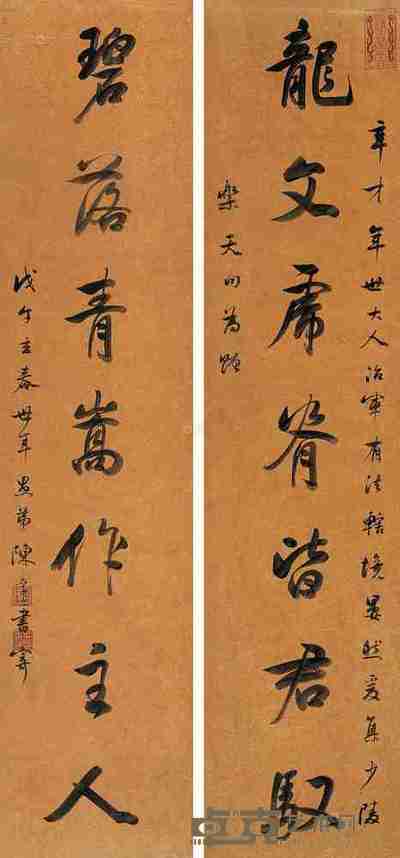 龍文虎脊皆君馭
才年世大人治軍有法轄境晏然爰集少陵
樂天句為贈
碧落青嵩作主人
戊午立春世年愚弟陳書